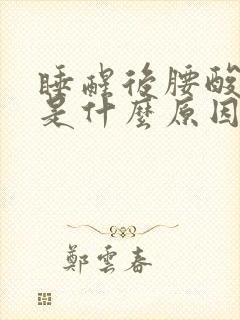 睡醒後腰酸
是什麼原因
鄭雲春